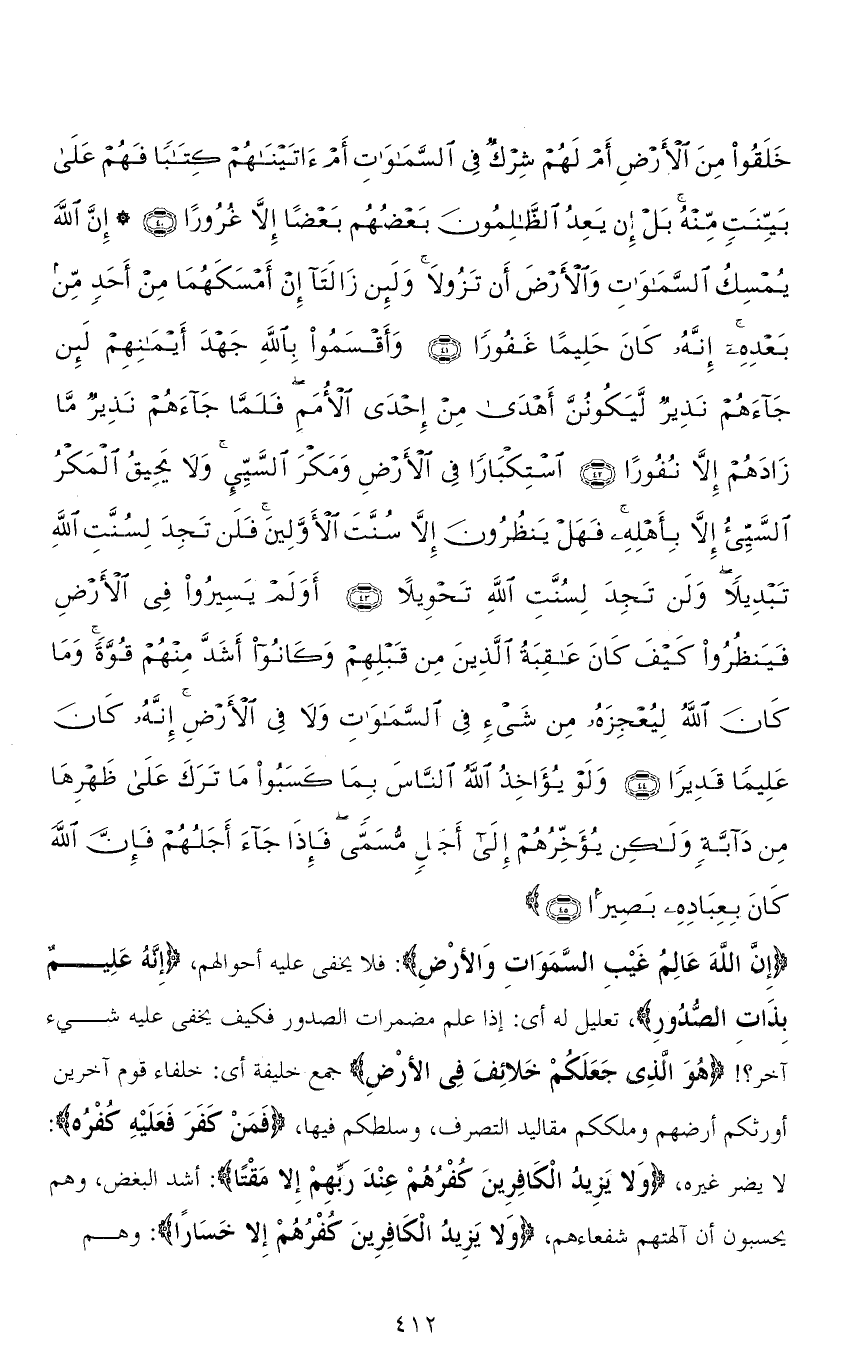 خَلَقُوا۟ مِنَ ٱلْأَرْضِ أَمْ لَهُمْ شِرْكٌ فِى ٱلسَّمَـٰوَٰتِ أَمْ ءَاتَيْنَـٰهُمْ كِتَـٰبًا فَهُمْ عَلَىٰ
بَيِّنَتٍ مِّنْهُ ۚ بَلْ إِن يَعِدُ ٱلظَّـٰلِمُونَ بَعْضُهُم بَعْضًا إِلَّا غُرُورًا ﴿٤٠﴾ ۞ إِنَّ ٱللَّهَ
يُمْسِكُ ٱلسَّمَـٰوَٰتِ وَٱلْأَرْضَ أَن تَزُولَا ۚ وَلَئِن زَالَتَآ إِنْ أَمْسَكَهُمَا مِنْ أَحَدٍ مِّنۢ
بَعْدِهِۦٓ ۚ إِنَّهُۥ كَانَ حَلِيمًا غَفُورًا ﴿٤١﴾ وَأَقْسَمُوا۟ بِٱللَّهِ جَهْدَ أَيْمَـٰنِهِمْ لَئِن
جَآءَهُمْ نَذِيرٌ لَّيَكُونُنَّ أَهْدَىٰ مِنْ إِحْدَى ٱلْأُمَمِ ۖ فَلَمَّا جَآءَهُمْ نَذِيرٌ مَّا
زَادَهُمْ إِلَّا نُفُورًا ﴿٤٢﴾ ٱسْتِكْبَارًا فِى ٱلْأَرْضِ وَمَكْرَ ٱلسَّيِّئِ ۚ وَلَا يَحِيقُ ٱلْمَكْرُ
ٱلسَّيِّئُ إِلَّا بِأَهْلِهِۦ ۚ فَهَلْ يَنظُرُونَ إِلَّا سُنَّتَ ٱلْأَوَّلِينَ ۚ فَلَن تَجِدَ لِسُنَّتِ ٱللَّهِ
تَبْدِيلًا ۖ وَلَن تَجِدَ لِسُنَّتِ ٱللَّهِ تَحْوِيلًا ﴿٤٣﴾ أَوَلَمْ يَسِيرُوا۟ فِى ٱلْأَرْضِ
فَيَنظُرُوا۟ كَيْفَ كَانَ عَـٰقِبَةُ ٱلَّذِينَ مِن قَبْلِهِمْ وَكَانُوٓا۟ أَشَدَّ مِنْهُمْ قُوَّةً ۚ وَمَا
كَانَ ٱللَّهُ لِيُعْجِزَهُۥ مِن شَىْءٍ فِى ٱلسَّمَـٰوَٰتِ وَلَا فِى ٱلْأَرْضِ ۚ إِنَّهُۥ كَانَ
عَلِيمًا قَدِيرًا ﴿٤٤﴾ وَلَوْ يُؤَاخِذُ ٱللَّهُ ٱلنَّاسَ بِمَا كَسَبُوا۟ مَا تَرَكَ عَلَىٰ ظَهْرِهَا
مِن دَآبَّةٍ وَلَـٰكِن يُؤَخِّرُهُمْ إِلَىٰٓ أَجَلٍ مُّسَمًّى ۖ فَإِذَا جَآءَ أَجَلُهُمْ فَإِنَّ ٱللَّهَ
كَانَ بِعِبَادِهِۦ بَصِيرًۢا ﴿٤٥﴾ ﴾
﴿إِنَّ اللَّهَ عَالِمُ غَيْبِ السَّمَوَاتِ وَالأَرْضِ﴾: فلا يخفى عليه أحوالهم، ﴿إِنَّهُ عَلِيـــمٌ
بِذَاتِ الصُّدُورِ﴾، تعليل له أى: إذا علم مضمرات الصدور فكيف يخفى عليه شـــيء
آخر؟! ﴿هُوَ الَّذِى جَعَلَكُمْ خَلائِفَ فِى الأَرْضِ﴾ جمع خليفة أى: خلفاء قوم آخرين
أورثكم أرضهم وملككم مقاليد التصرف، وسلطكم فيها، ﴿فَمَنْ كَفَرَ فَعَلَيْهِ كُفْرُه﴾:
لا يضر غيره، ﴿وَلا يَزِيدُ الْكَافِرِينَ كُفْرُهُمْ عِنْدَ رَبِّهِمْ إِلا مَقْتًا﴾: أشد البغض، وهم
يحسبون أن آلهتهم شفعاءهم، ﴿وَلا يَزِيدُ الْكَافِرِينَ كُفْرُهُمْ إِلا خَسَارًا﴾: وهـــم
٤١٢